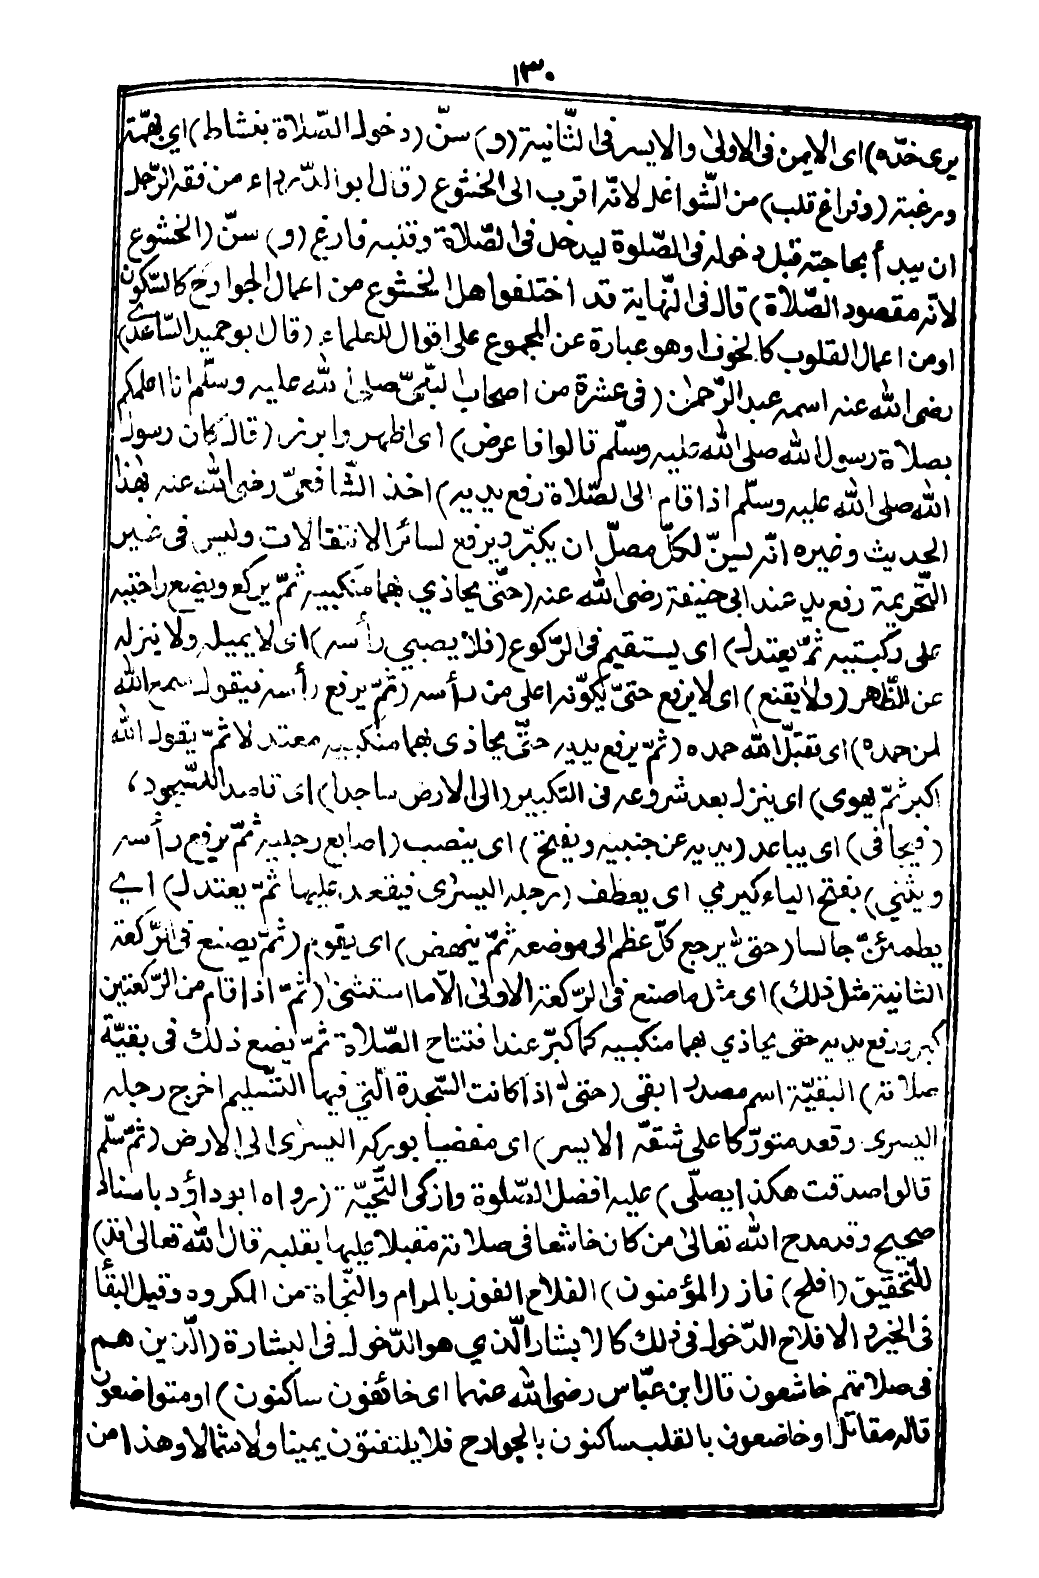 ١٣٠
يرى خدّه) اى الايمن فى الاولىٰ والايسر فى الثّانية (و) سنّ (دخول الصّلاة بنشاط) اي بهمّة
ورغبة (وفراغ قلب) من الشّواغل لانّه اقرب الى الخشوع (قال ابو الدّرداء من فقه الرّجل
ان يبدأ بحاجته قبل دخوله فى الصّلوة ليدخل فى الصّلاة وقلبه فارغ (و) سنّ (الخشوع
لانّه مقصود الصّلاة) قال فى النّهاية قد اختلفوا هل الخشوع من اعمال الجوارح كالسّكون
اومن اعمال القلوب كالخوف او هو عبارة عن المجموع على اقوال للعلماء (قال ابو حميد السّاعدىّ)
رضى الله عنه اسمه عبد الرّحمٰن (فى عشرة من اصحاب النّبىّ صلى الله عليه وسلّم انا اعلمكم
بصلاة رسول الله صلى الله عليه وسلّم قالوا فاعرض) اى اظهر وابرز (قال كان رسول
الله صلى الله عليه وسلّم اذا قام الى الصّلاة رفع يديه) اخذ الشّافعىّ رضى الله عنه بهٰذا
الحديث وغيره انّه يسنّ لكلّ مصلّ ان يكبّر ويرفع لسائر الانتقالات وليس فى غير
التّحريمة رفع يد عند ابى حنيفة رضى الله عنه (حتّى يحاذي بهما منكبيه ثمّ يركع ويضع راحتيه
على ركبتيه ثمّ يعتدل) اى يستقيم فى الرّكوع (فلا يصبي رأسه) اى لا يميله ولا ينزله
عن الظّهر (ولا يقنع) اى لا يرفع حتىّ يكوّنه اعلى من رأسه (ثمّ يرفع رأسه فيقول سمع الله
لمن حمده) اى تقبّل الله حمده (ثمّ يرفع يديه حتّى يحاذى بهما منكبيه معتدلا ثمّ يقول الله
اكبر ثمّ يهوى) اى ينزل بعد شروعه فى التكبير (الى الارض ساجدا) اى قاصدا للسّجود،
(فيجافى) اى يباعد (يديه عن جنبيه ويفتخ) اى ينصب (اصابع رجليه ثمّ يرفع رأسه
ويثني) بفتح الياء كيرمي اى يعطف (رجله اليسرى فيقعد عليها ثمّ يعتدل) اي
يطمئنّ جالسا (حتىّ يرجع كلّ عظم الى موضعه ثمّ ينهض) اى يقوم (ثمّ يصنع فى الرّكعة
الثانية مثل ذلك) اى مثل ما صنع فى الرّكعة الاولىٰ الاّ ما استثنى (ثمّ اذا قام من الرّكعتين
كبر ورفع يديه حتى يحاذي بهما منكبيه كما كبّر عند افتتاح الصّلاة ثمّ يضع ذلك فى بقيّة
صلاته) البقيّة اسم مصدر ابقى (حتىّ اذا كانت السّجدة الّتي فيها التّسليم اخرج رجله
اليسرى وقعد متورّكا على شقّه الايسر) اى مفضيا بوركه اليسرى الى الارض (ثمّ سلّم
قالوا صدقت هكذا يصلّى) عليه افضل الصّلوة وازكى التّحيّة (رواه ابو داؤد باسناد
صحيح وقد مدح الله تعالىٰ من كان خاشعا فى صلاته مقبلا عليها بقلبه قال الله تعالىٰ قد)
للتّحقيق (افلح) فاز (المؤمنون) الفلاح الفوز بالمرام والنّجاة من المكروه وقيل البقأ
فى الخير والافلاح الدّخول فى ذلك كالابشار الّذي هو الدّخول فى البشارة (الّذين هم
فى صلاتهم خاشعون قال ابن عبّاس رضى الله عنهما اى خائفون ساكنون) او متواضعون
قاله مقاتل او خاضعون بالقلب ساكنون بالجوارح فلا يلتفتون يمينا ولا شمالا وهذا من